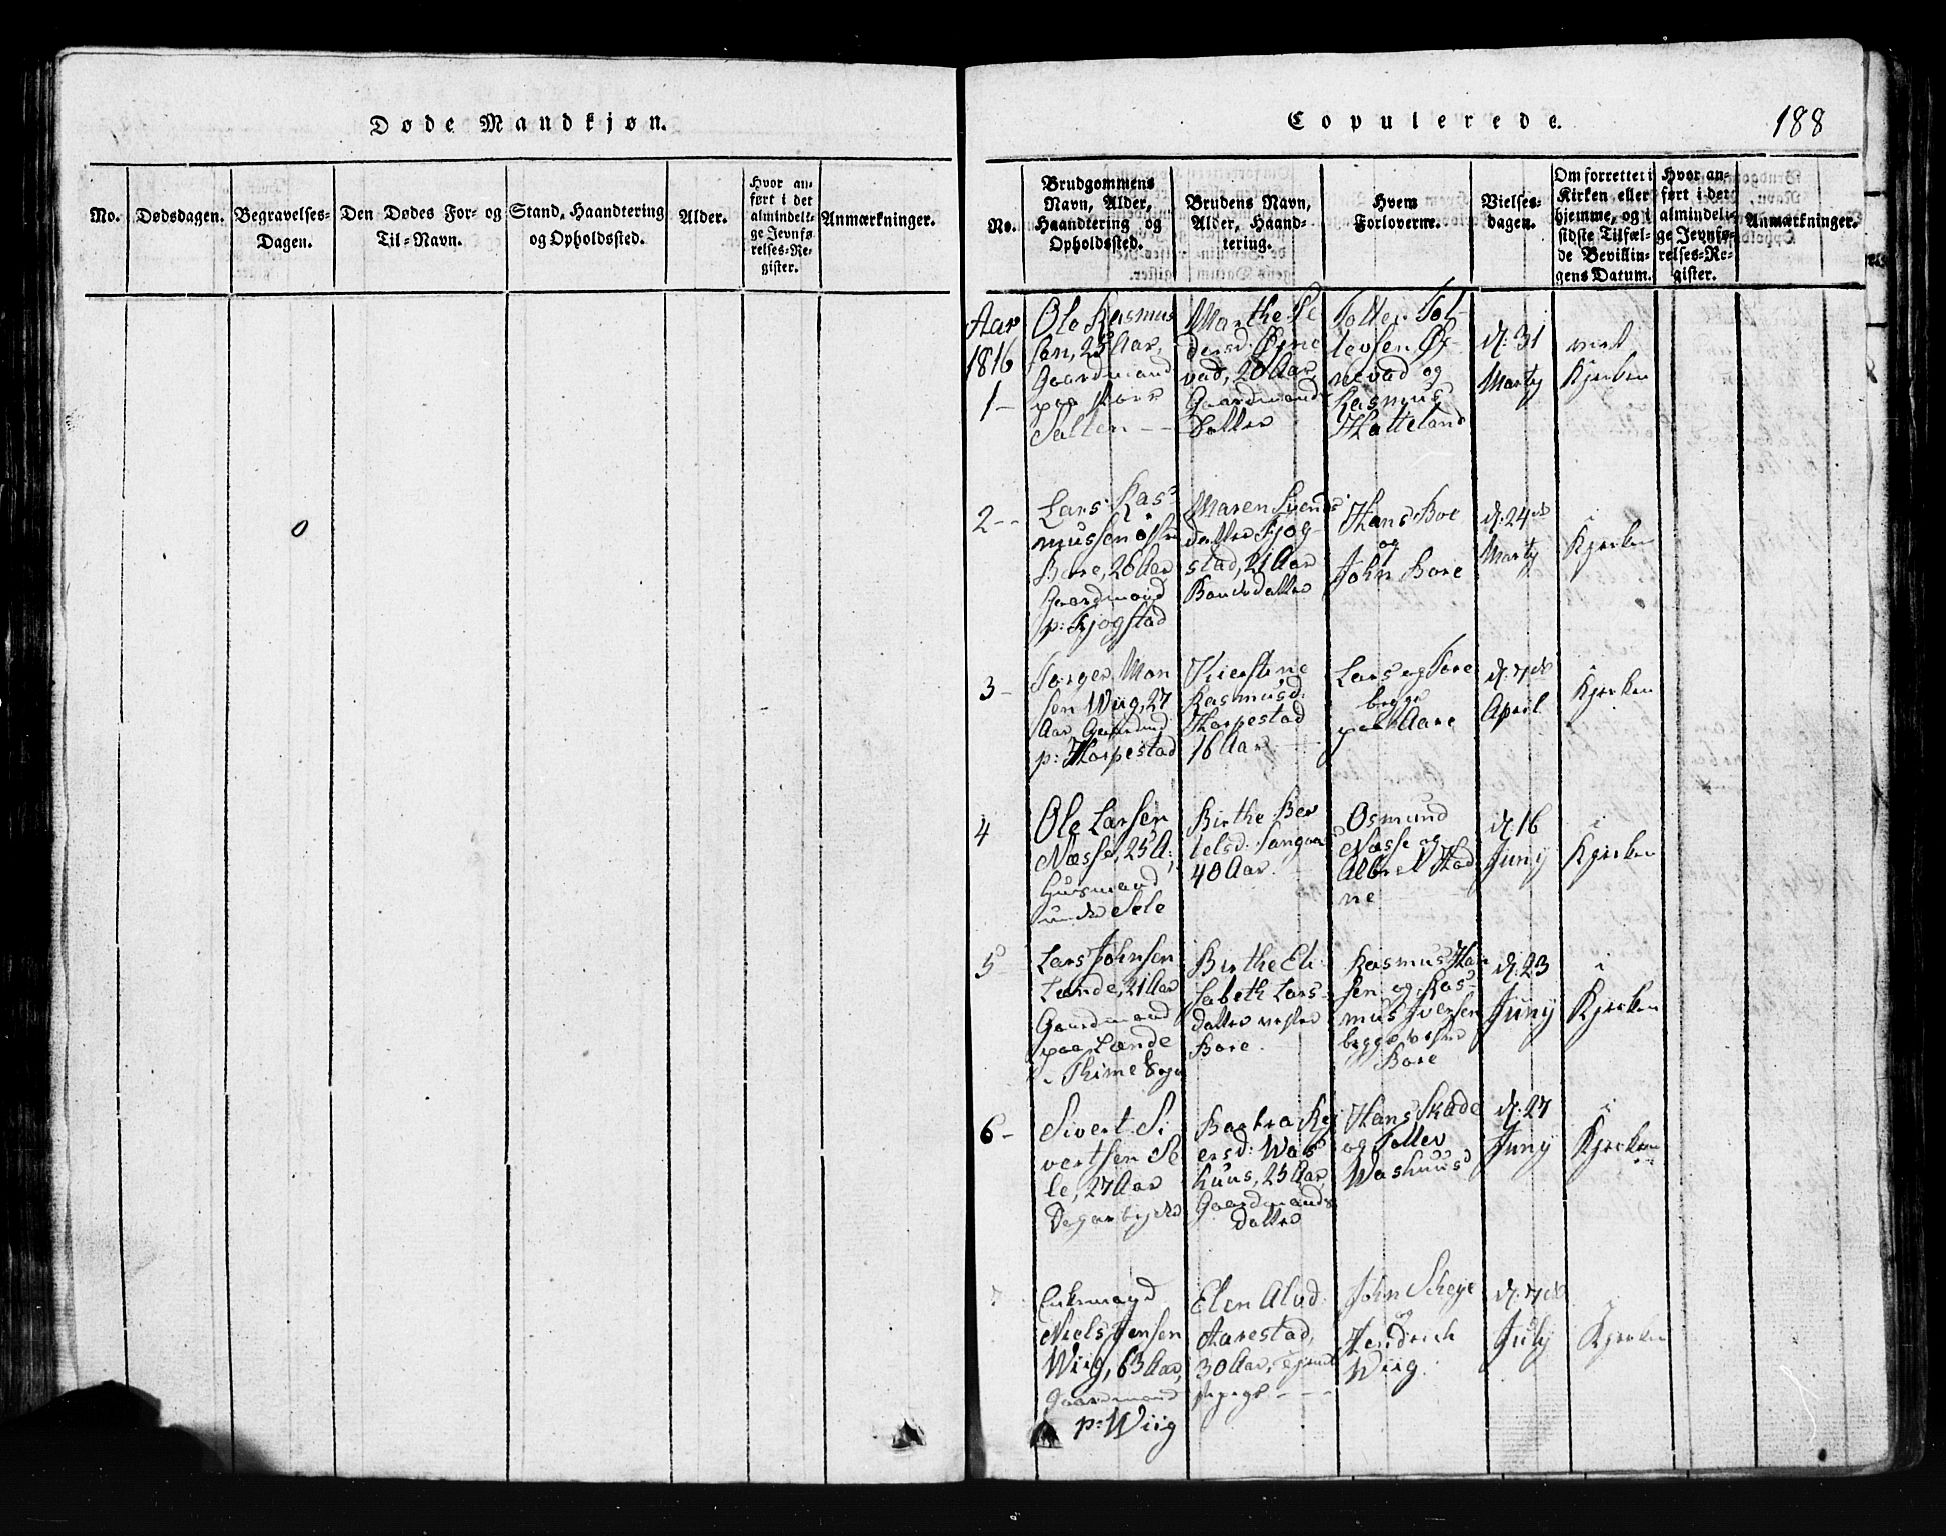 Døde Mandkjøn.
No.
Dødsdagen.
Begravelses-
Dagen.
Den Dødes For- og
Til-Navn.
Stand, Haandtering
og Opholdssted.
Alder.
Hvor an-
ført i det
almindeli-
ge Jevnfø-
relses-Re-
gister.
Anmærkninger.
0
Copulerede.
188
No.
Brudgommens
Navn, Alder,
Haandtering og
Opholdssted.
Brudens Navn,
Alder, Haand-
tering.
Hvem
Forloverne.
Vielses-
dagen.
Om forrettet i
Kirken eller
hjemme, og i
sidste Tilfæl-
de Bevillin-
gens Datum.
Hvor an-
ført i det
almindeli-
ge Jevnfø-
relses-Re-
gister.
Anmærkninger.
Aar
1816
1-
Ole Rasmus
sen, 25 Aar,
Gaardmand
paa
Salten
Marthe Pe
dersd: Øxne
vad, 20 Aar,
Gaardmands
Datter
Tollev Tol-
levsen Øx-
nevad og
Rasmus
Hatteland
d: 31
Marty
Kjerken
2-
Lars Ras-
mussen østre
Bore, 26 Aar
Gaardmand
p: Skjogstad
Maren Svends
datter Skjog-
stad, 21 Aar
Bondedatter
Hans Boe
og
John Bore
d: 24de
Marty
Kjerken
3-
Torger Mon
sen Wiig, 27
Aar, Gaardmd
p: Horpestad
Kierstene
Rasmusd:
Horpestad
16 Aar
Lars og Tore
begge
paa Aare
d: 7de
April
Kjerken
4
Ole Larsen
Næsse, 25 A:
Huusmand
under Sele
Birthe Ber
telsd:
40 Aar
Osmund
Næsse og
Albret Hod
ne
d: 16
Juny
i
Kjerken
5
Lars Johnsen
Lænde, 21 Aar
Gaardmand
paa Lænde
i Thime Sogn
Birthe Eli
sabeth Lars-
datter vestre
Bore
Rasmus Han
sen og Ras-
mus Iversen
begge vestre
Bore
d: 23
Juny
i
Kjerken
6-
Sivert Si
vertsen Se
le, 27 Aar
Barbra Rej
ersd: Was
huus, 25 Aar,
Gaardmands
Datter
Hans Skade
og Tollev
Washuus
d: 27
Juny
i
Kjerken
Enkemand
Niels Jensen
Wiig, 63 Aar,
Gaardmand
p: Wiig
Elen Alud:
Aarestad,
30 Aar, tjeneste
pige
John Scheje
og
Hendrich
Wiig
d: 7de
July
i
Kjerken